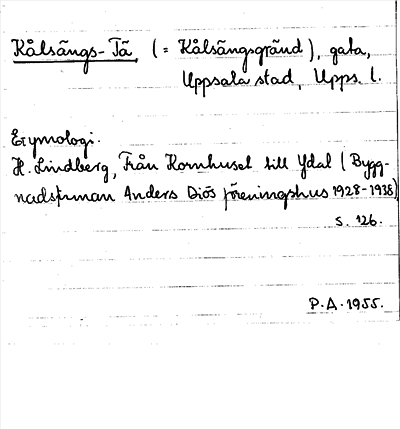 Kålsängs-Tä, (= Kålsängsgränd), gata,
Uppsala stad, Upps. l.
Etymologi.
H. Lindberg, Från Kornhuset till Ydal (Bygg-
nadsfirman Anders Diös föreningshus 1928-1938)
s. 126.
P.A. 1955.